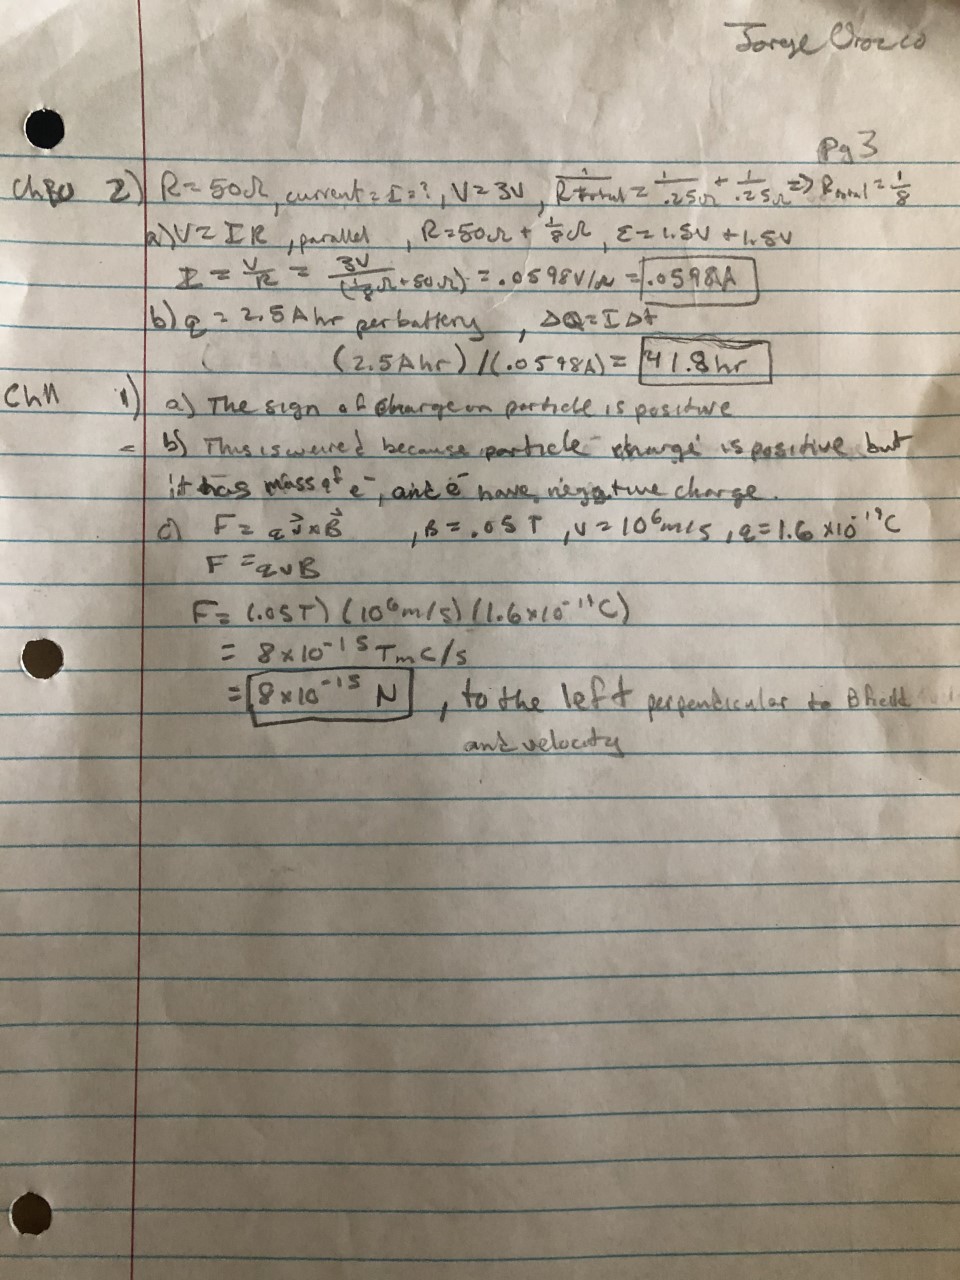 Jorge Orozco
Pg 3
Ch10 2) R = 50Ω, current = I = ?, V = 3V, 1/Rtotal = 1/.25Ω + 1/.25Ω => Rtotal = 1/8
a) V = IR, parallel, R = 50Ω + 1/8Ω, ε = 1.5V + 1.5V
I = V/R = 3V/(1/8Ω + 50Ω) = .0598V/Ω = .0598A
b) q = 2.5 A hr per battery, ΔQ = IΔt
(2.5 A hr)/(.0598A) = 41.8 hr
Ch11 1) a) The sign of charge on particle is positive
= b) This is weired because particle charge is positive but
it has mass of e⁻, and e⁻ have negative charge.
c) F = qv⃗×B⃗, B = .05 T, v = 10⁶m/s, q = 1.6×10⁻¹⁹C
F = qvB
F = (.05T)(10⁶m/s)(1.6×10⁻¹⁹C)
= 8×10⁻¹⁵ TmC/s
= 8×10⁻¹⁵ N, to the left perpendicular to B field
and velocity